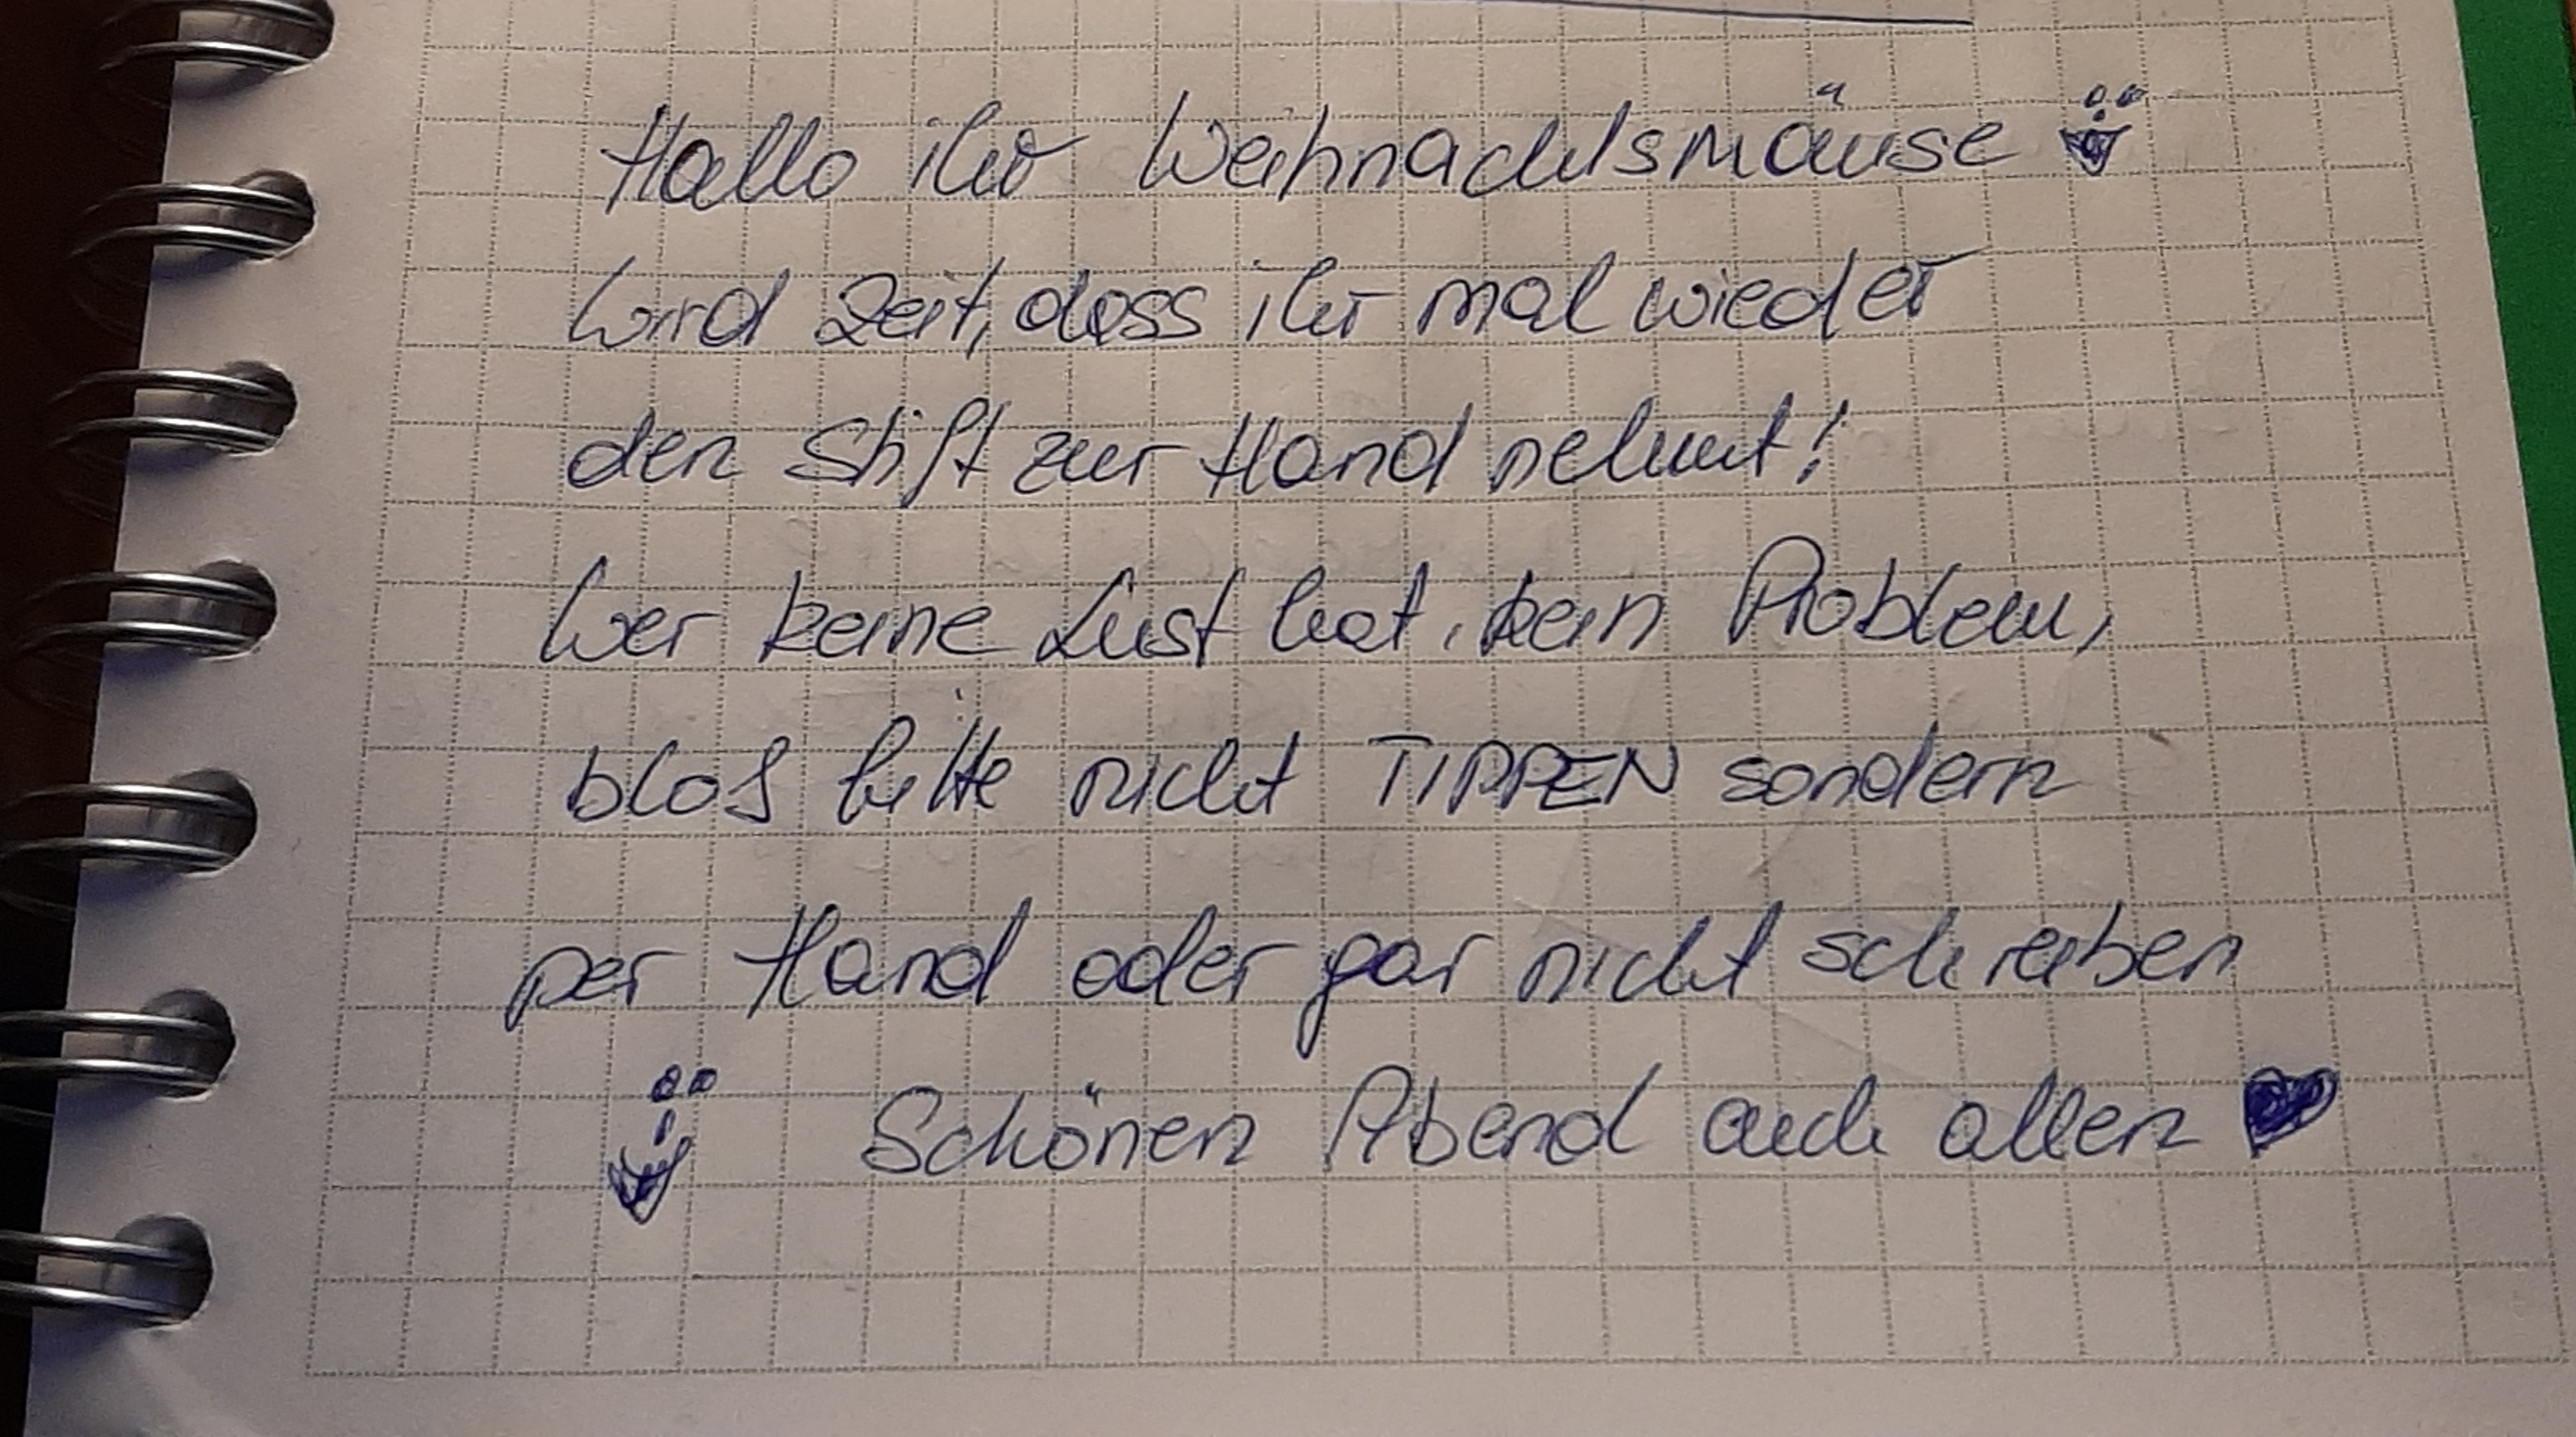 Hallo ihr Weihnachtsmäuse
Wird Zeit, dass ihr mal wieder
den Stift zur Hand nehmt!
Wer keine Lust hat, kein Problem,
bloß bitte nicht TIPPEN sondern
per Hand oder gar nicht schreiben
Schönen Abend euch allen ♥